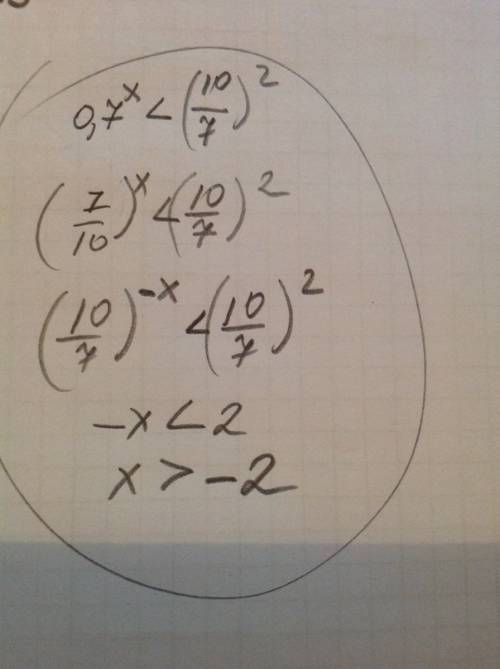 0,7^x < (10/7)^2
(7/10)^x < (10/7)^2
(10/7)^-x < (10/7)^2
-x < 2
x > -2